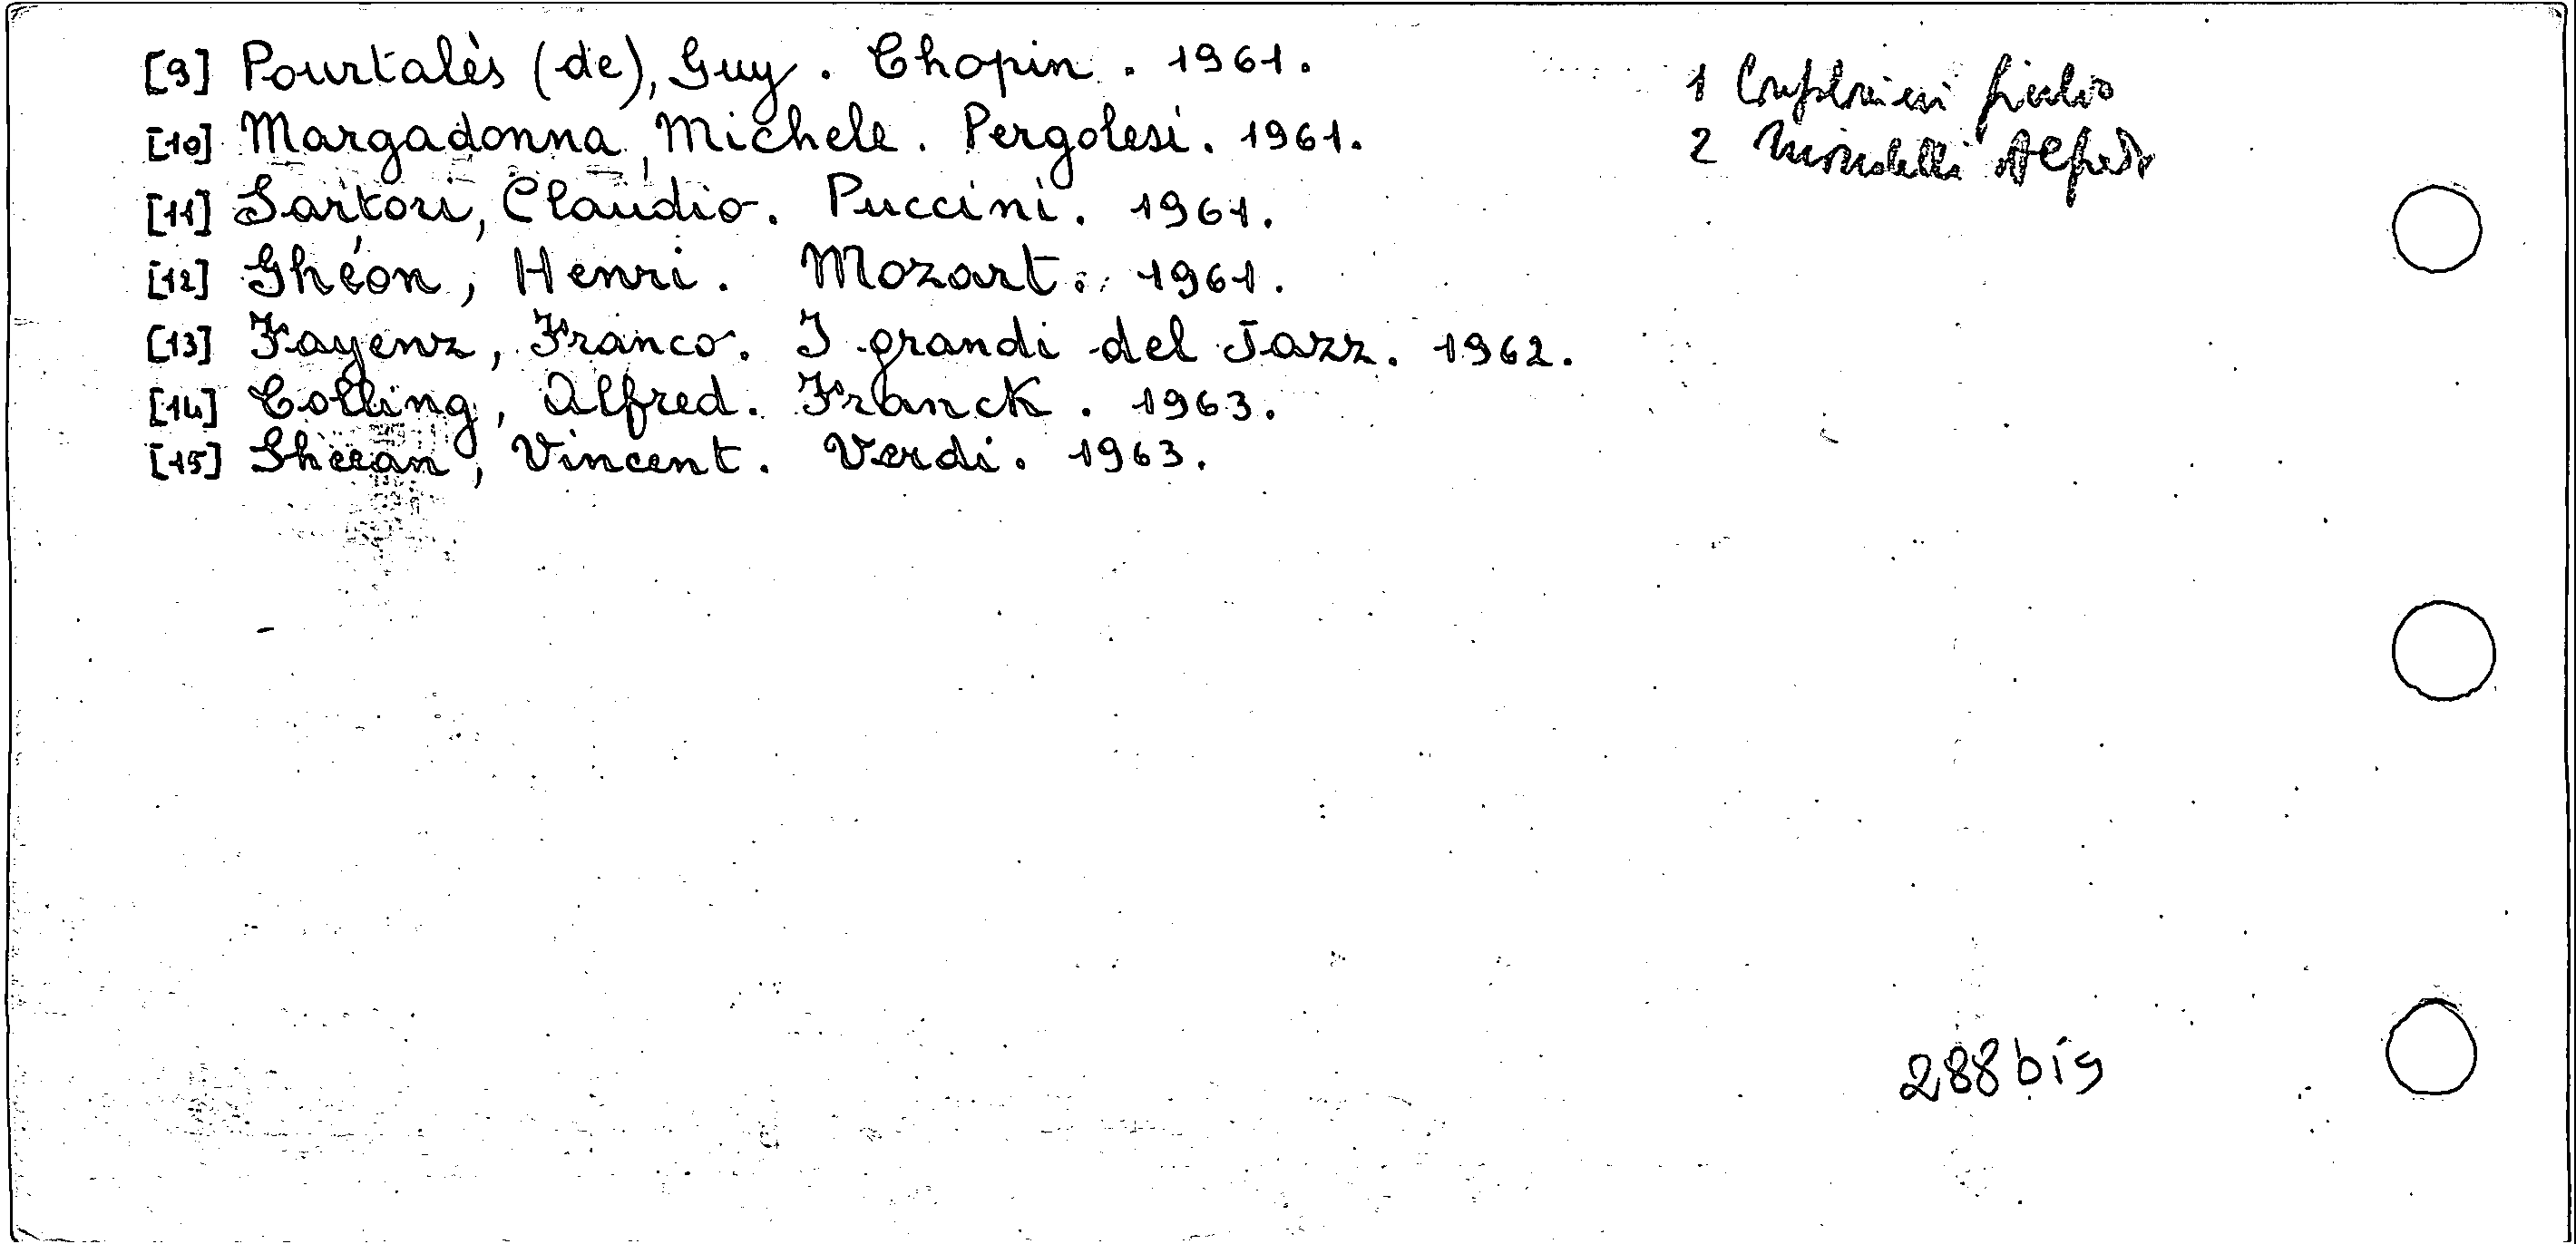 [9] Pourtalès (de), Guy. Chopin. 1961.
[10] Margadonna, Michele. Pergolesi. 1961.
[11] Sartori, Claudio. Puccini. 1961.
[12] Ghéon, Henri. Mozart. 1961.
[13] Fayenz, Franco. I grandi del Jazz. 1962.
[14] Colling, Alfred. Franck. 1963.
[15] Sheean, Vincent. Verdi. 1963.
1 Confalonieri Giulio
2 Alfredo
288 bis